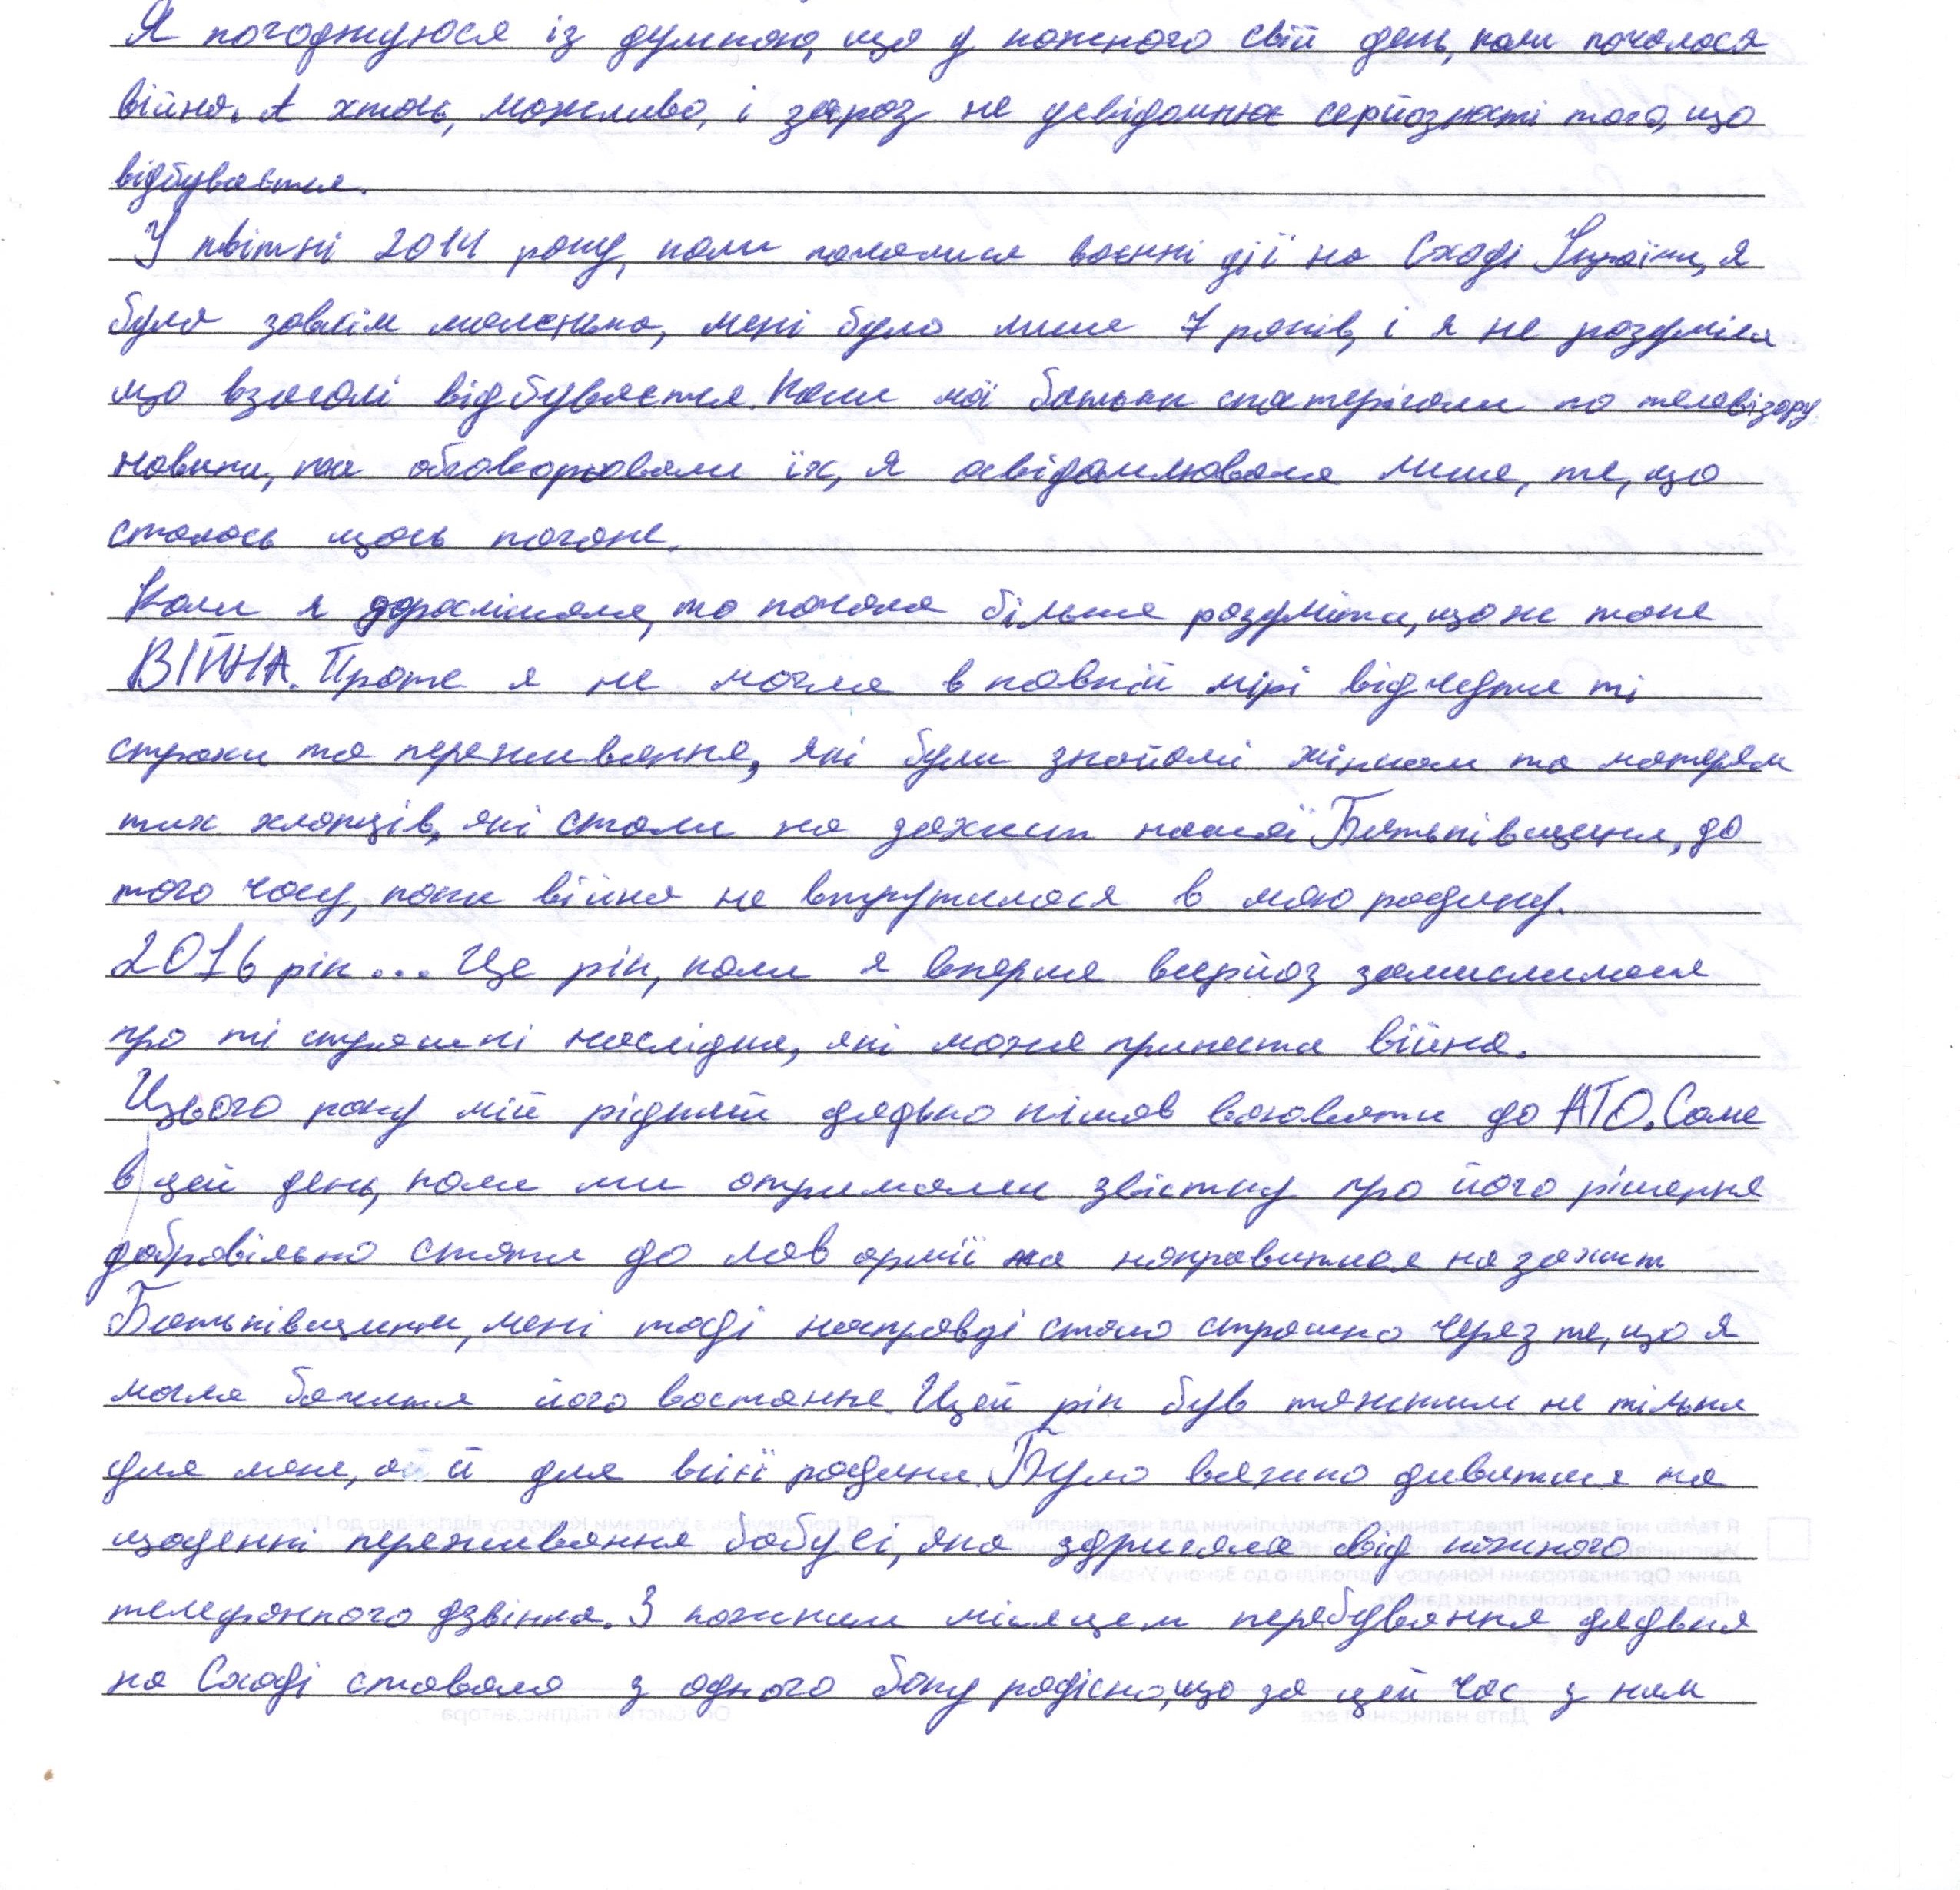 Я погоджуюся із думкою, що у кожного свій день, коли почалася
війна. А хтось, можливо, і зараз не усвідомлює серйозності того, що
відбувається.
У квітні 2014 року, коли почалися воєнні дії на Сході України, я
була зовсім маленька, мені було лише 7 років, і я не розуміла
що взагалі відбувається. Коли мої батьки спостерігали по телевізору
новини, та обговорювали їх, я усвідомлювала лише, те, що
сталось щось погане.
Коли я дорослішала, то почала більше розуміти, що ж таке
ВІЙНА. Проте я не могла в повній мірі відчути ті
страхи та переживання, які були знайомі жінкам та матерям
тих хлопців, які стали на захист нашої Батьківщини, до
того часу, поки війна не втрутилася в мою родину.
2016 рік... Це рік, коли я вперше всерйоз замислилася
про ті страшні наслідки, які може принести війна.
Цього року мій рідний дядько пішов воювати до АТО. Саме
в цей день, коли ми отримали звістку про його рішення
добровільно стати до лав армії та направитися на захист
Батьківщини, мені тоді насправді стало страшно через те, що я
могла бачити його востаннє. Цей рік був тяжким не тільки
для мене, а й для всієї родини. Було важко дивитися на
щоденні переживання бабусі, яка здригала від кожного
телефонного дзвінка. З кожним місяцем перебування дядька
на Сході ставало з одного боку радісно, що за цей час з ним